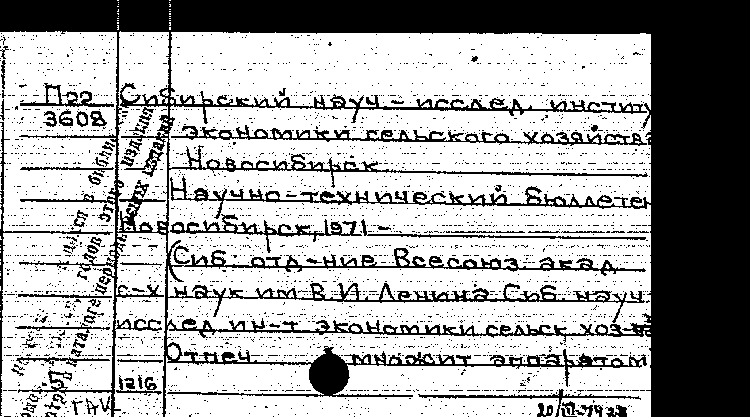 П22
3608
Сибирский науч-исслед. институ
экономики сельского хозяйства
Новосибирск
Научно-технический бюллетен
Новосибирск, 1971 -
(Сиб. отд-ние Всесоюз. акад
с-х наук им В.И. Ленина Сиб. науч
исслед ин-т экономики сельск хоз-ва
Отпеч. множит аппаратом
1216